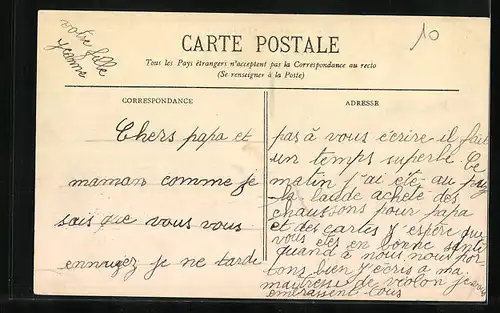 votre fille
Jeanne
10
CARTE POSTALE
Tous les Pays étrangers n'acceptent pas la Correspondance au recto
(Se renseigner à la Poste)
CORRESPONDANCE
ADRESSE
Chers papa et
maman comme je
sais que vous vous
ennuyez je ne tarde
pas à vous écrire il fait
un temps superbe Ce
matin j'ai été au puy
la laude acheté des
chaussons pour papa
et des cartes J'espère que
vous etes en bonne santé
quand à nous nous por
tons bien J'écris a ma
maitresse de violon je vous
embrassent tous